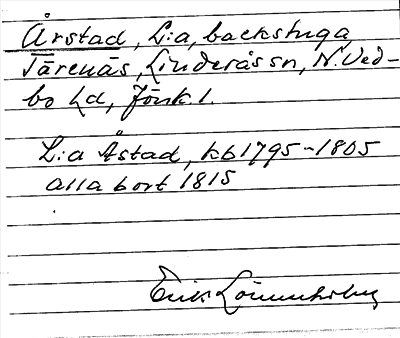 Årstad, L:a, backstuga
Tärenäs, Linderås sn, N. Ved-
bo hd, Jönk. l.
L:a Åstad, kb 1795-1805
alla bort 1815
Erik